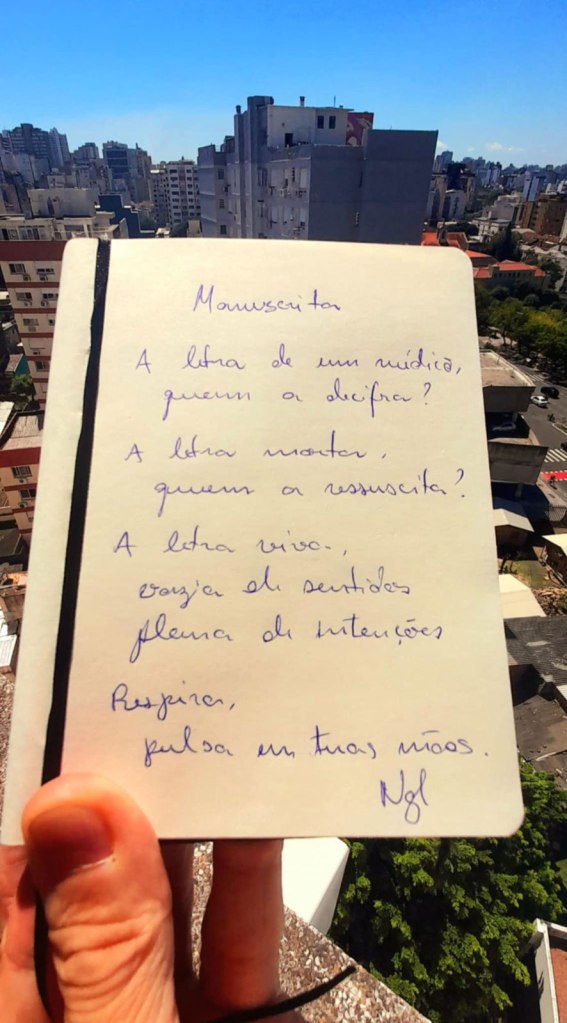 Manuscrita
A letra de um médico,
quem a decifra?
A letra morta,
quem a ressuscita?
A letra viva,
vazia de sentidos
plena de intenções
Respira,
pulsa em tuas mãos.
Ngl